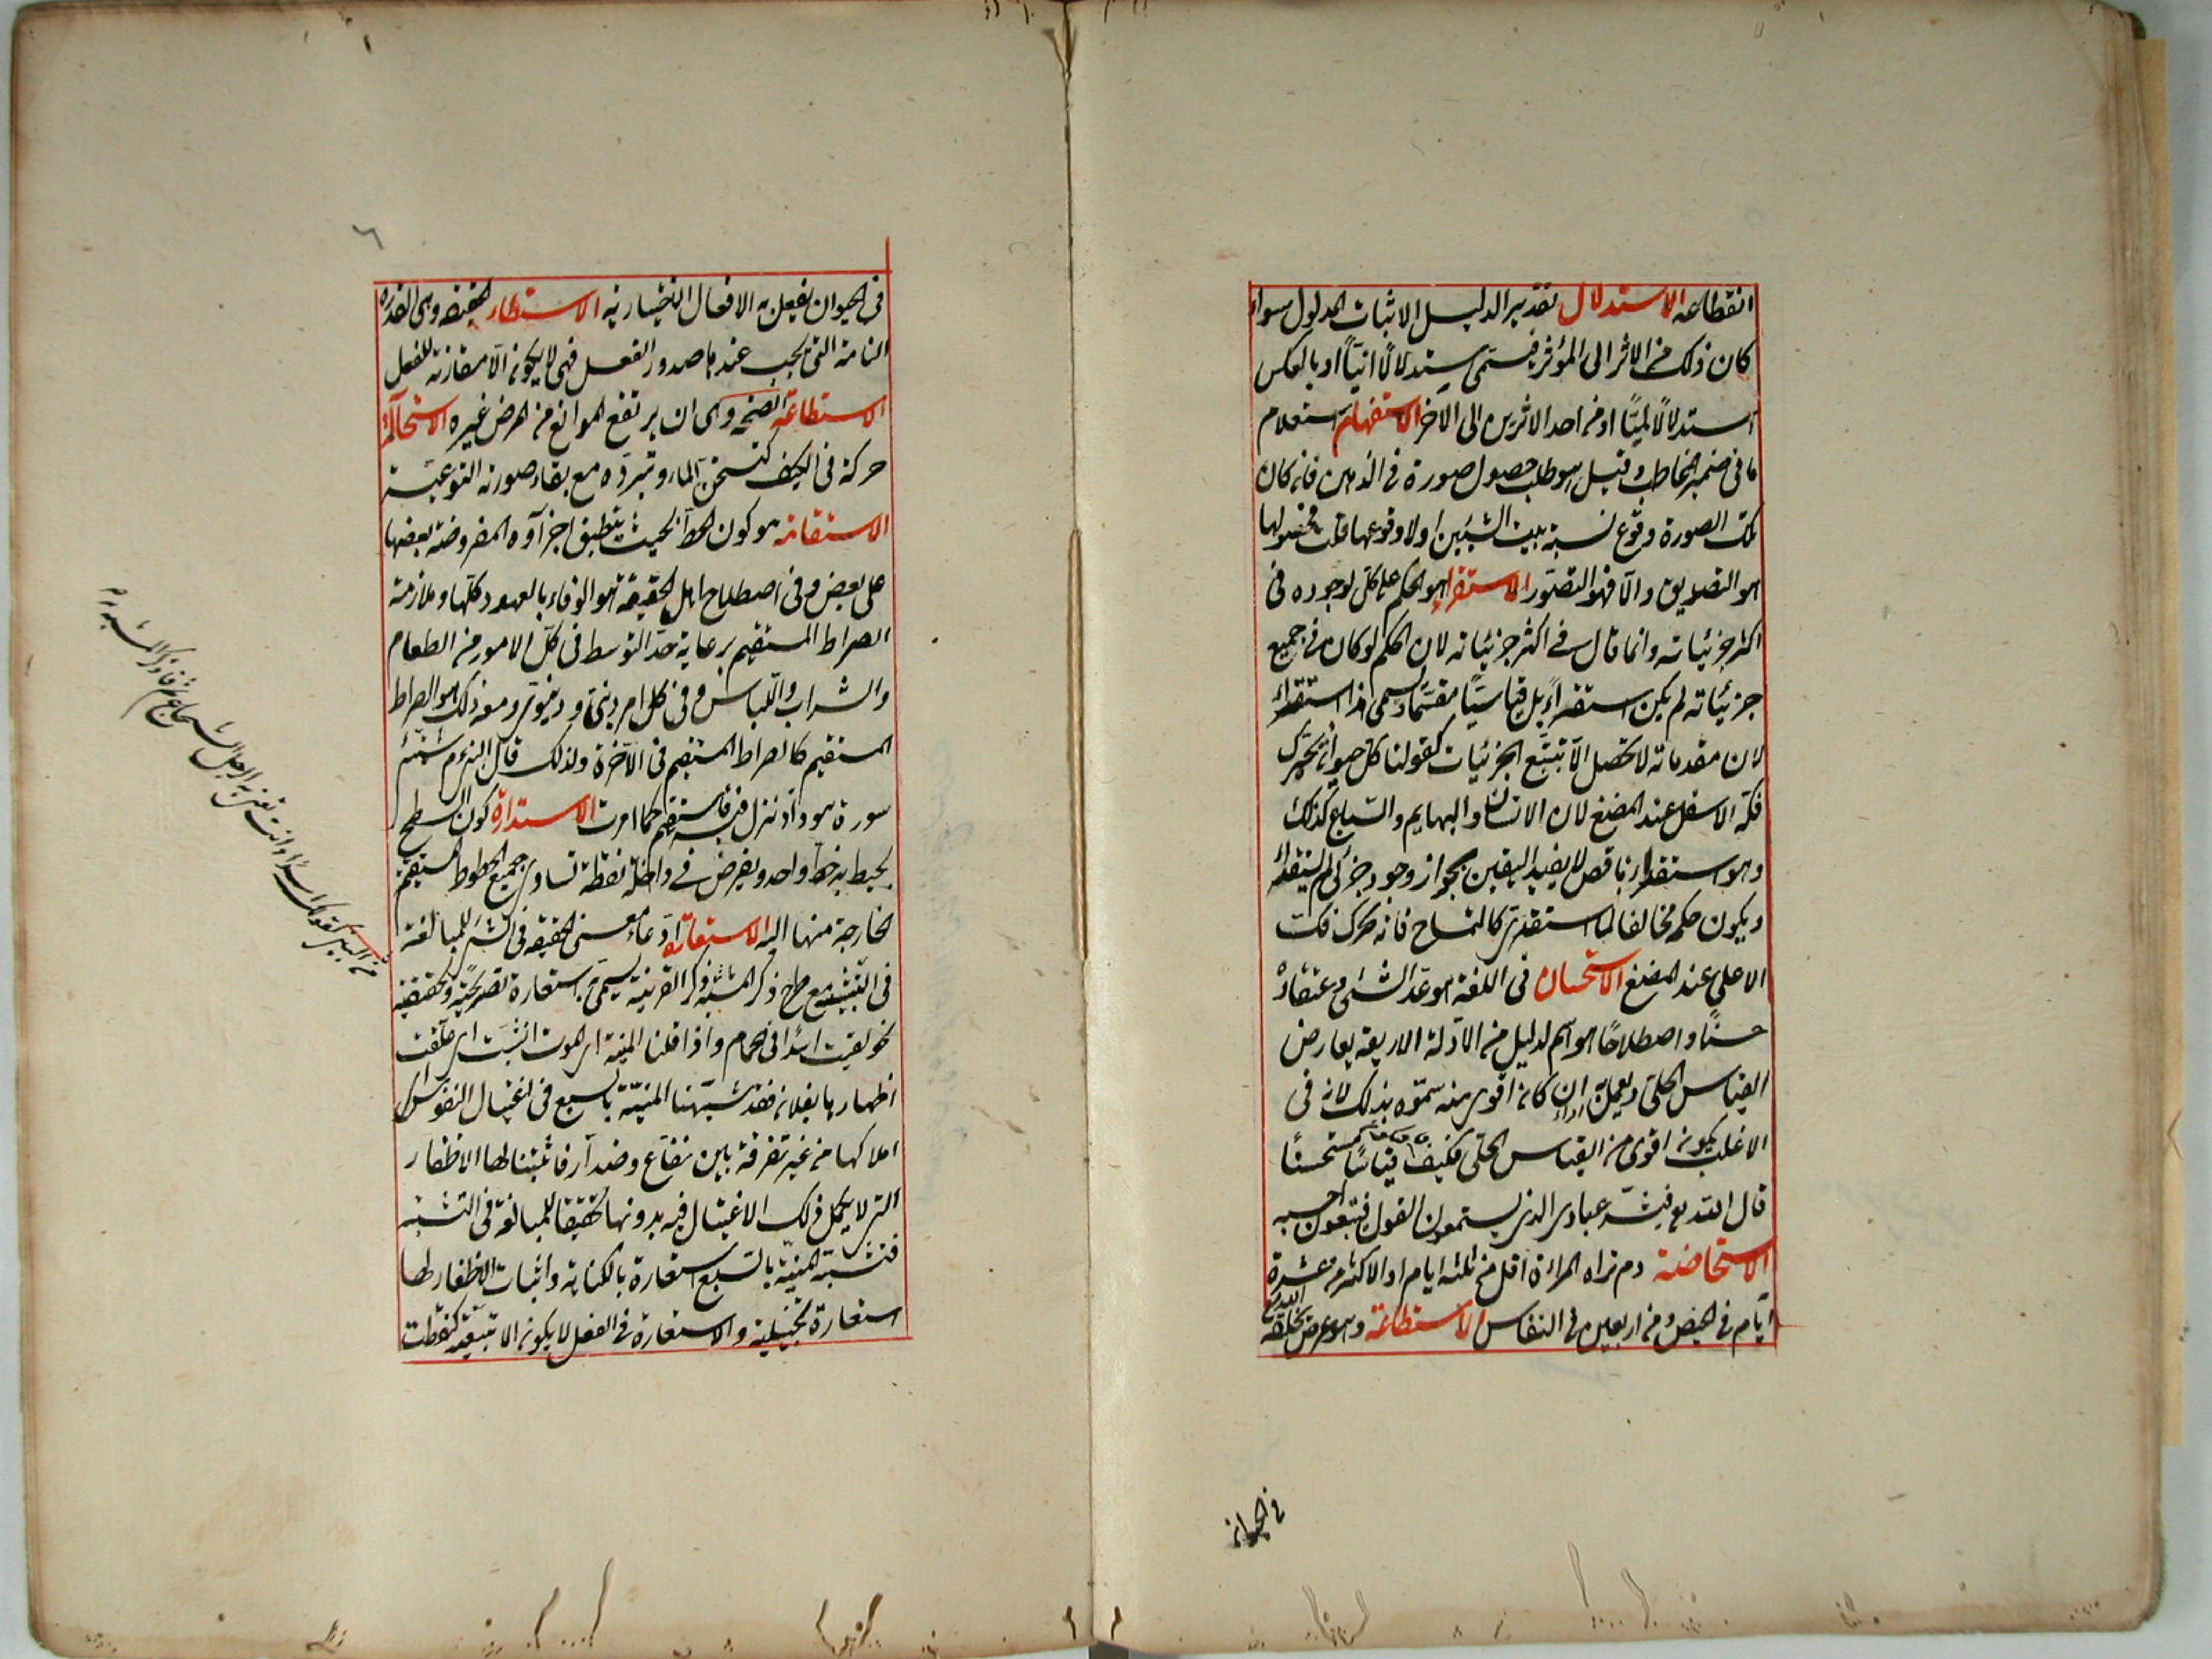 انقطاعه الاستدلال تقدير الدليل لاثبات المدلول سواء
كان ذلك من الاثر الى المؤثر فيسمى استدلالا انيّا او بالعكس
استدلالا لميّا او من احد الاثرين الى الآخر الاستفهام استعلام
ما فى ضمير المخاطب وقيل هو طلب حصول صورة فى الذهن فان كان
تلك الصورة وقوع نسبة بين الشيئين اولا وقوعها فحصولها
هو التصديق والّا فهو التصوّر الاستقراء هو الحكم على كلّ لوجوده فى
اكثر جزئياته وانما قال فى اكثر جزئياته لان الحكم لو كان فى جميع
جزئياته لم يكن استقراءً بل قياسا مقسّما ويسمى هذا استقراء
لان مقدماته لا تحصل الّا بتتبّع الجزئيات كقولنا كل حيوان يحرّك
فكّه الاسفل عند المضغ لان الانسان والبهايم والسّباع كذلك
وهو استقراء ناقص لا يفيد اليقين بجواز وجود جزئى لم يستقرأ
ويكون حكمه مخالفا لما استقرئ كالتمساح فانه يحرك فكّه
الاعلى عند المضغ الاستحسان فى اللغة هو عدّ الشئ واعتقاده
حسنًا واصطلاحًا هو اسم لدليل من الادّلة الاربعة يعارض
القياس الجلى ويعمل به اذا كان اقوى منه سمّوه بذلك لانه فى
الاغلب يكون اقوى من القياس الجلى فيكون قياسًا مستحسنًا
قال الله تع فبشّر عبادى الذين يستمعون القول فيتبعون احسنه
الاستحاضة دم تراه المراءة اقل من ثلثة ايام او الاكثر من عشرة
ايّام فى الحيض ومن اربعين فى النفاس الاستطاعة وهو عرض يخلقه الله تع
فى الحيوان
فى الحيوان يفعل به الافعال الاختياريه الاستطار الحقيقة وهى القدرة
التامة التى يجب عندها صدور الفعل فهى لا يكون الّا مقارنة للفعل
الاستطاعة الصحة وهى ان يرتفع الموانع من المرض وغيره الاستحالة
حركة فى الكيف كتسخن الماء وتبرده مع بقاء صورته النوعية
الاستقامة هو كون الخط بحيث ينطبق اجزاؤه المفروضة بعضها
على بعض وفى اصطلاح اهل الحقيقة هو الوفاء بالعهود كلّها وملازمة
الصراط المستقيم برعاية حدّ التوسط فى كلّ الامور من الطعام
والشراب واللّباس وفى كل امر دينى ودنيوى ومعه ذلك هو الصراط
المستقيم كالصراط المستقيم فى الآخرة ولذلك قال النبى م شيّبتنى
سورة هود اذ نزل فيه فاستقم كما امرت الاستدارة كون السطح
يحيط به خط واحد ويفرض فى داخله نقطة تساوى جميع الخطوط المستقيمة
الخارجة منها اليه الاستعارة ادّعاء معنى الحقيقة فى الشئ للمبالغة
فى التّشبيه مع طرح ذكر المشبه وذكر القرينة يسمى استعارة تصريحيّة وتحقيقية
نحو لقيت اسدًا فى الحمام واذا قلنا المنيّة اى الموت انشبت اى علقت
اظفارها بفلان فقد شبّهنا المنيّة بالسبع فى اغتيال النفوس اى
اهلاكها من غير تفرقة بين نفّاع وضرّار فاثبتنا لها الاظفار
التى لا يكمل ذلك الاغتيال فيه بدونها تحقيقا للمبالغة فى التشبيه
فتشبيه المنيّة بالسّبع استعارة بالكناية واثبات الاظفار لها
استعارة تخييلية والاستعارة فى الفعل لا يكون الا تبعيّة كنطقت
من البين كقولك لقيت اسدًا وانت تعنى به الرجل الشجاع ثم فان ذكر المشبه به
٦